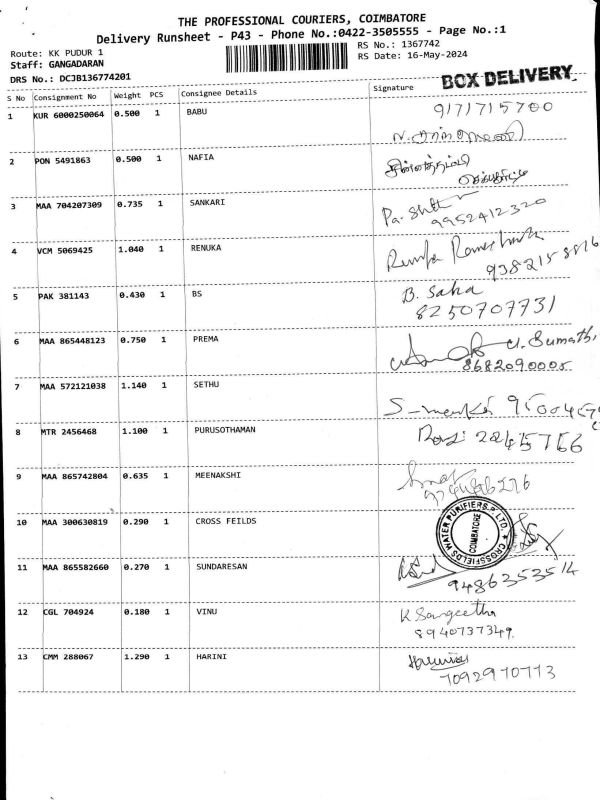 THE PROFESSIONAL COURIERS, COIMBATORE
Delivery Runsheet - P43 - Phone No.:0422-3505555 - Page No.:1
Route: KK PUDUR 1
RS No.: 1367742
Staff: GANGADARAN
RS Date: 16-May-2024
DRS No.: DCJB136774201
BOX DELIVERY
S No Consignment No Weight PCS Consignee Details Signature
1 KUR 6000250064 0.500 1 BABU 9171715700
2 PON 5491863 0.500 1 NAFIA
3 MAA 704207309 0.735 1 SANKARI
9952412320
4 VCM 5069425 1.040 1 RENUKA
5 PAK 381143 0.430 1 BS B. Saha
8250707731
6 MAA 865448123 0.750 1 PREMA
8682090005
7 MAA 572121038 1.140 1 SETHU
8 MTR 2456468 1.100 1 PURUSOTHAMAN
9 MAA 865742804 0.635 1 MEENAKSHI
10 MAA 300630819 0.290 1 CROSS FEILDS
CROSSFIELDS WATER PURIFIERS P LTD.
COIMBATORE
11 MAA 865582660 0.270 1 SUNDARESAN
9486353514
12 CGL 704924 0.180 1 VINU K Sangeetha
8940737349
13 CMM 288067 1.290 1 HARINI
7092970773